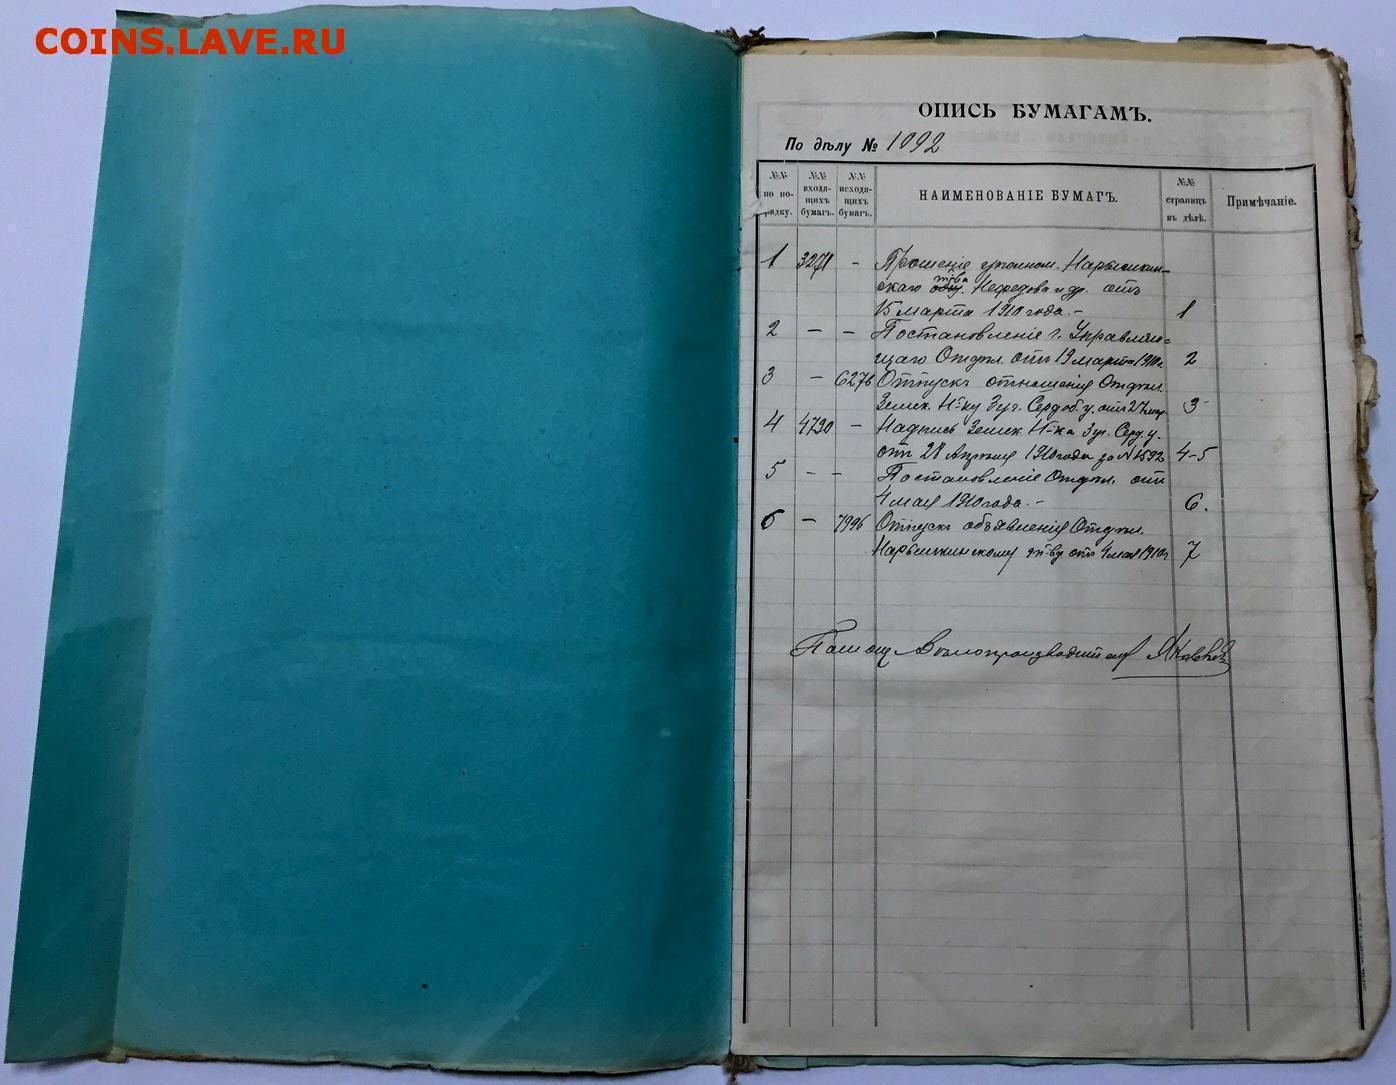 COINS.LAVE.RU
ОПИСЬ БУМАГАМЪ.
По дѣлу № 1092
№№ по по-рядку.
№№ входя-щихъ бумагъ.
№№ исходя-щихъ бумагъ.
НАИМЕНОВАНІЕ БУМАГЪ.
№№ страницъ въ дѣлѣ.
Примѣчаніе.
1 3271 - Прошеніе уполном. Нарышкин-
скаго т-ва Нефедова и др. отъ
15 марта 1910 года. - 1
2 - - Постановленіе г. Управляю-
щаго Отдѣл. отъ 19 марта 1910 г. 2
3 - 6276 Отпускъ отношенія Отдѣл.
Земск. Н-ку 3 уч. Сердоб. у. отъ 27 мар. 3
4 4730 - Надпись Земск Н-ка 3 уч. Серд. у.
отъ 28 Апрѣля 1910 года за № 1592 4-5
5 - - Постановленіе Отдѣл. отъ
4 мая 1910 года. - 6.
6 - 7996 Отпускъ объявленія Отдѣл.
Нарышкинскому т-ву отъ 4 мая 1910 г 7
Помощ Дѣлопроизводителя